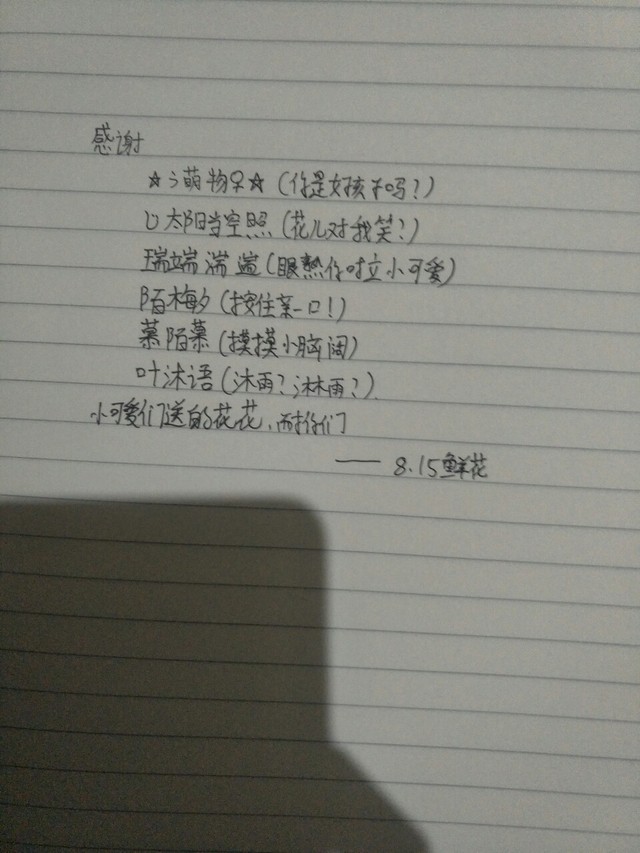 感谢
☆う萌物♀☆(你是女孩子吗?)
U太阳当空照(花儿对我笑?)
瑞端湍遄(眼熟你哒小可爱)
陌梅夕(按住亲一口!)
慕陌慕(摸摸小脑阔)
叶沐语(沐雨?淋雨?)
小可爱们送的花花,耐你们
—— 8.15鲜花